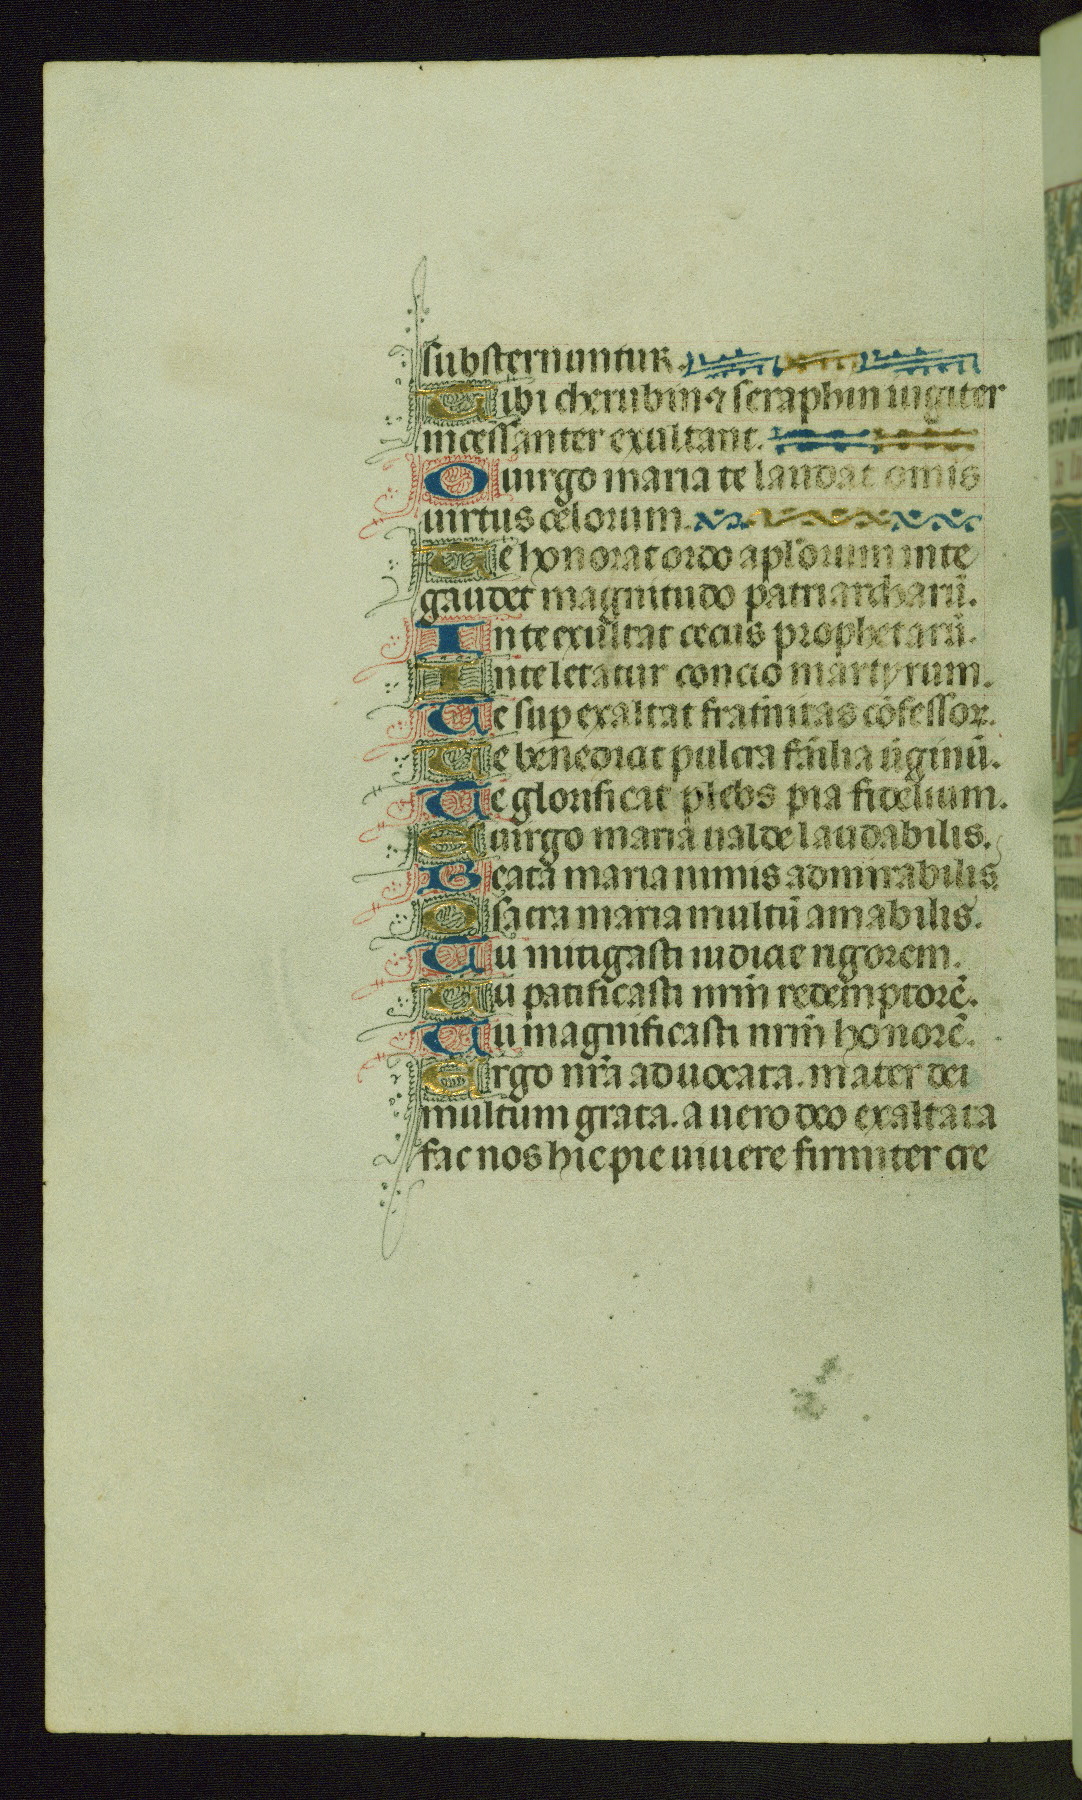 substernuntur.
Tibi cherubin ⁊ seraphin iugiter
incessanter exultant.
O uirgo maria te laudat om̄is
uirtus celorum.
Te honorat ordo aplōrum in te
gaudet magnitudo patriarcharū.
In te exultat cetus prophetarū.
In te letatur concio martyrum.
Te suꝑ exaltat frat̄nitas cōfessoꝝ.
Te benedicit pulcra fāilia ūginū.
Te glorificat plebs pia fidelium.
E uirgo maria ualde laudabilis.
Beata maria nimis admirabilis
O sacra maria multū amabilis.
Tu mitigasti iudicie rigorem.
Tu pacificasti nrm̄ redemptorē.
Tu magnificasti nrm̄ honorē.
Ergo nrā aduocata. mater dei
multum grata. a uero deo exaltata
fac nos hic pie uiuere firmiter cre